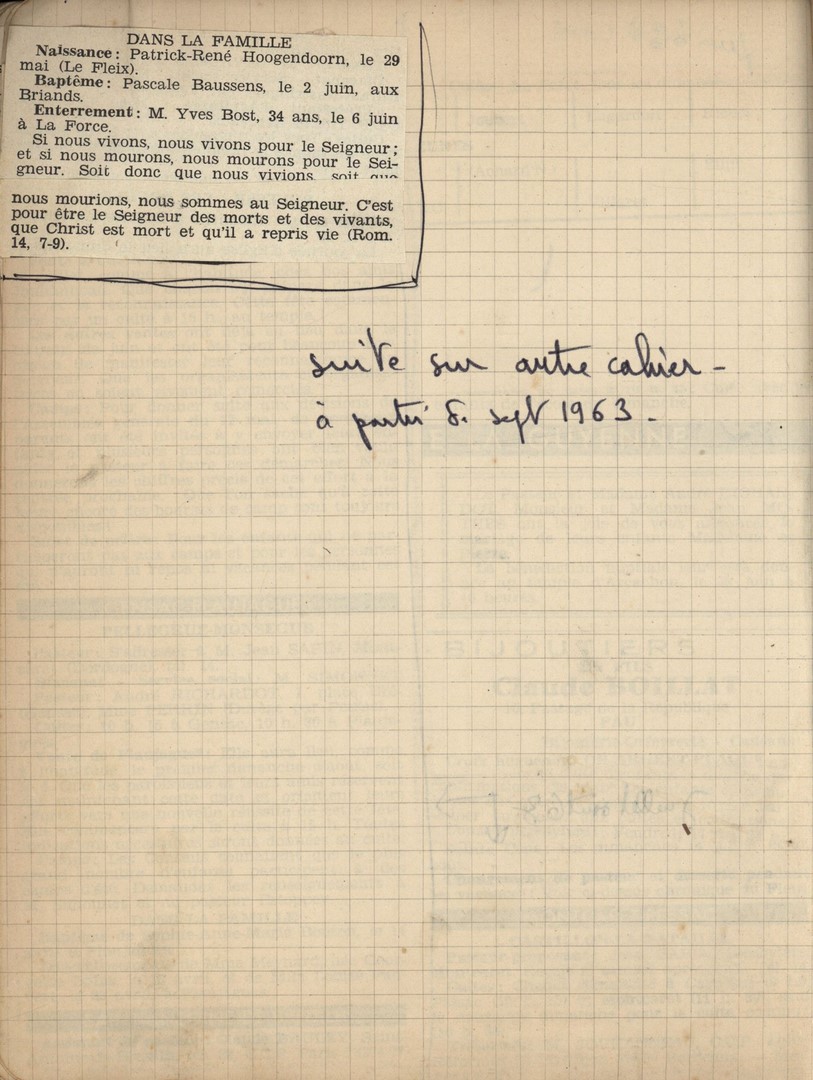 DANS LA FAMILLE
Naissance : Patrick-René Hoogendoorn, le 29
mai (Le Fleix).
Baptême : Pascale Baussens, le 2 juin, aux
Briands.
Enterrement : M. Yves Bost, 34 ans, le 6 juin
à La Force.
Si nous vivons, nous vivons pour le Seigneur ;
et si nous mourons, nous mourons pour le Sei-
gneur. Soit donc que nous vivions, soit que
nous mourions, nous sommes au Seigneur. C'est
pour être le Seigneur des morts et des vivants,
que Christ est mort et qu'il a repris vie (Rom.
14, 7-9).
suite sur autre cahier -
à partir de sept 1963 -